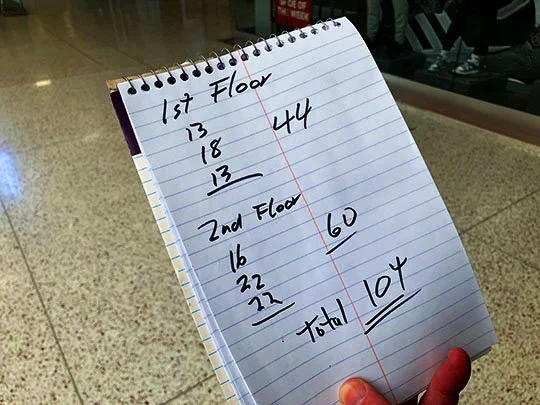 OF THE WEEK
1st Floor
13 44
18
13
2nd Floor
16 60
22
22
Total 104